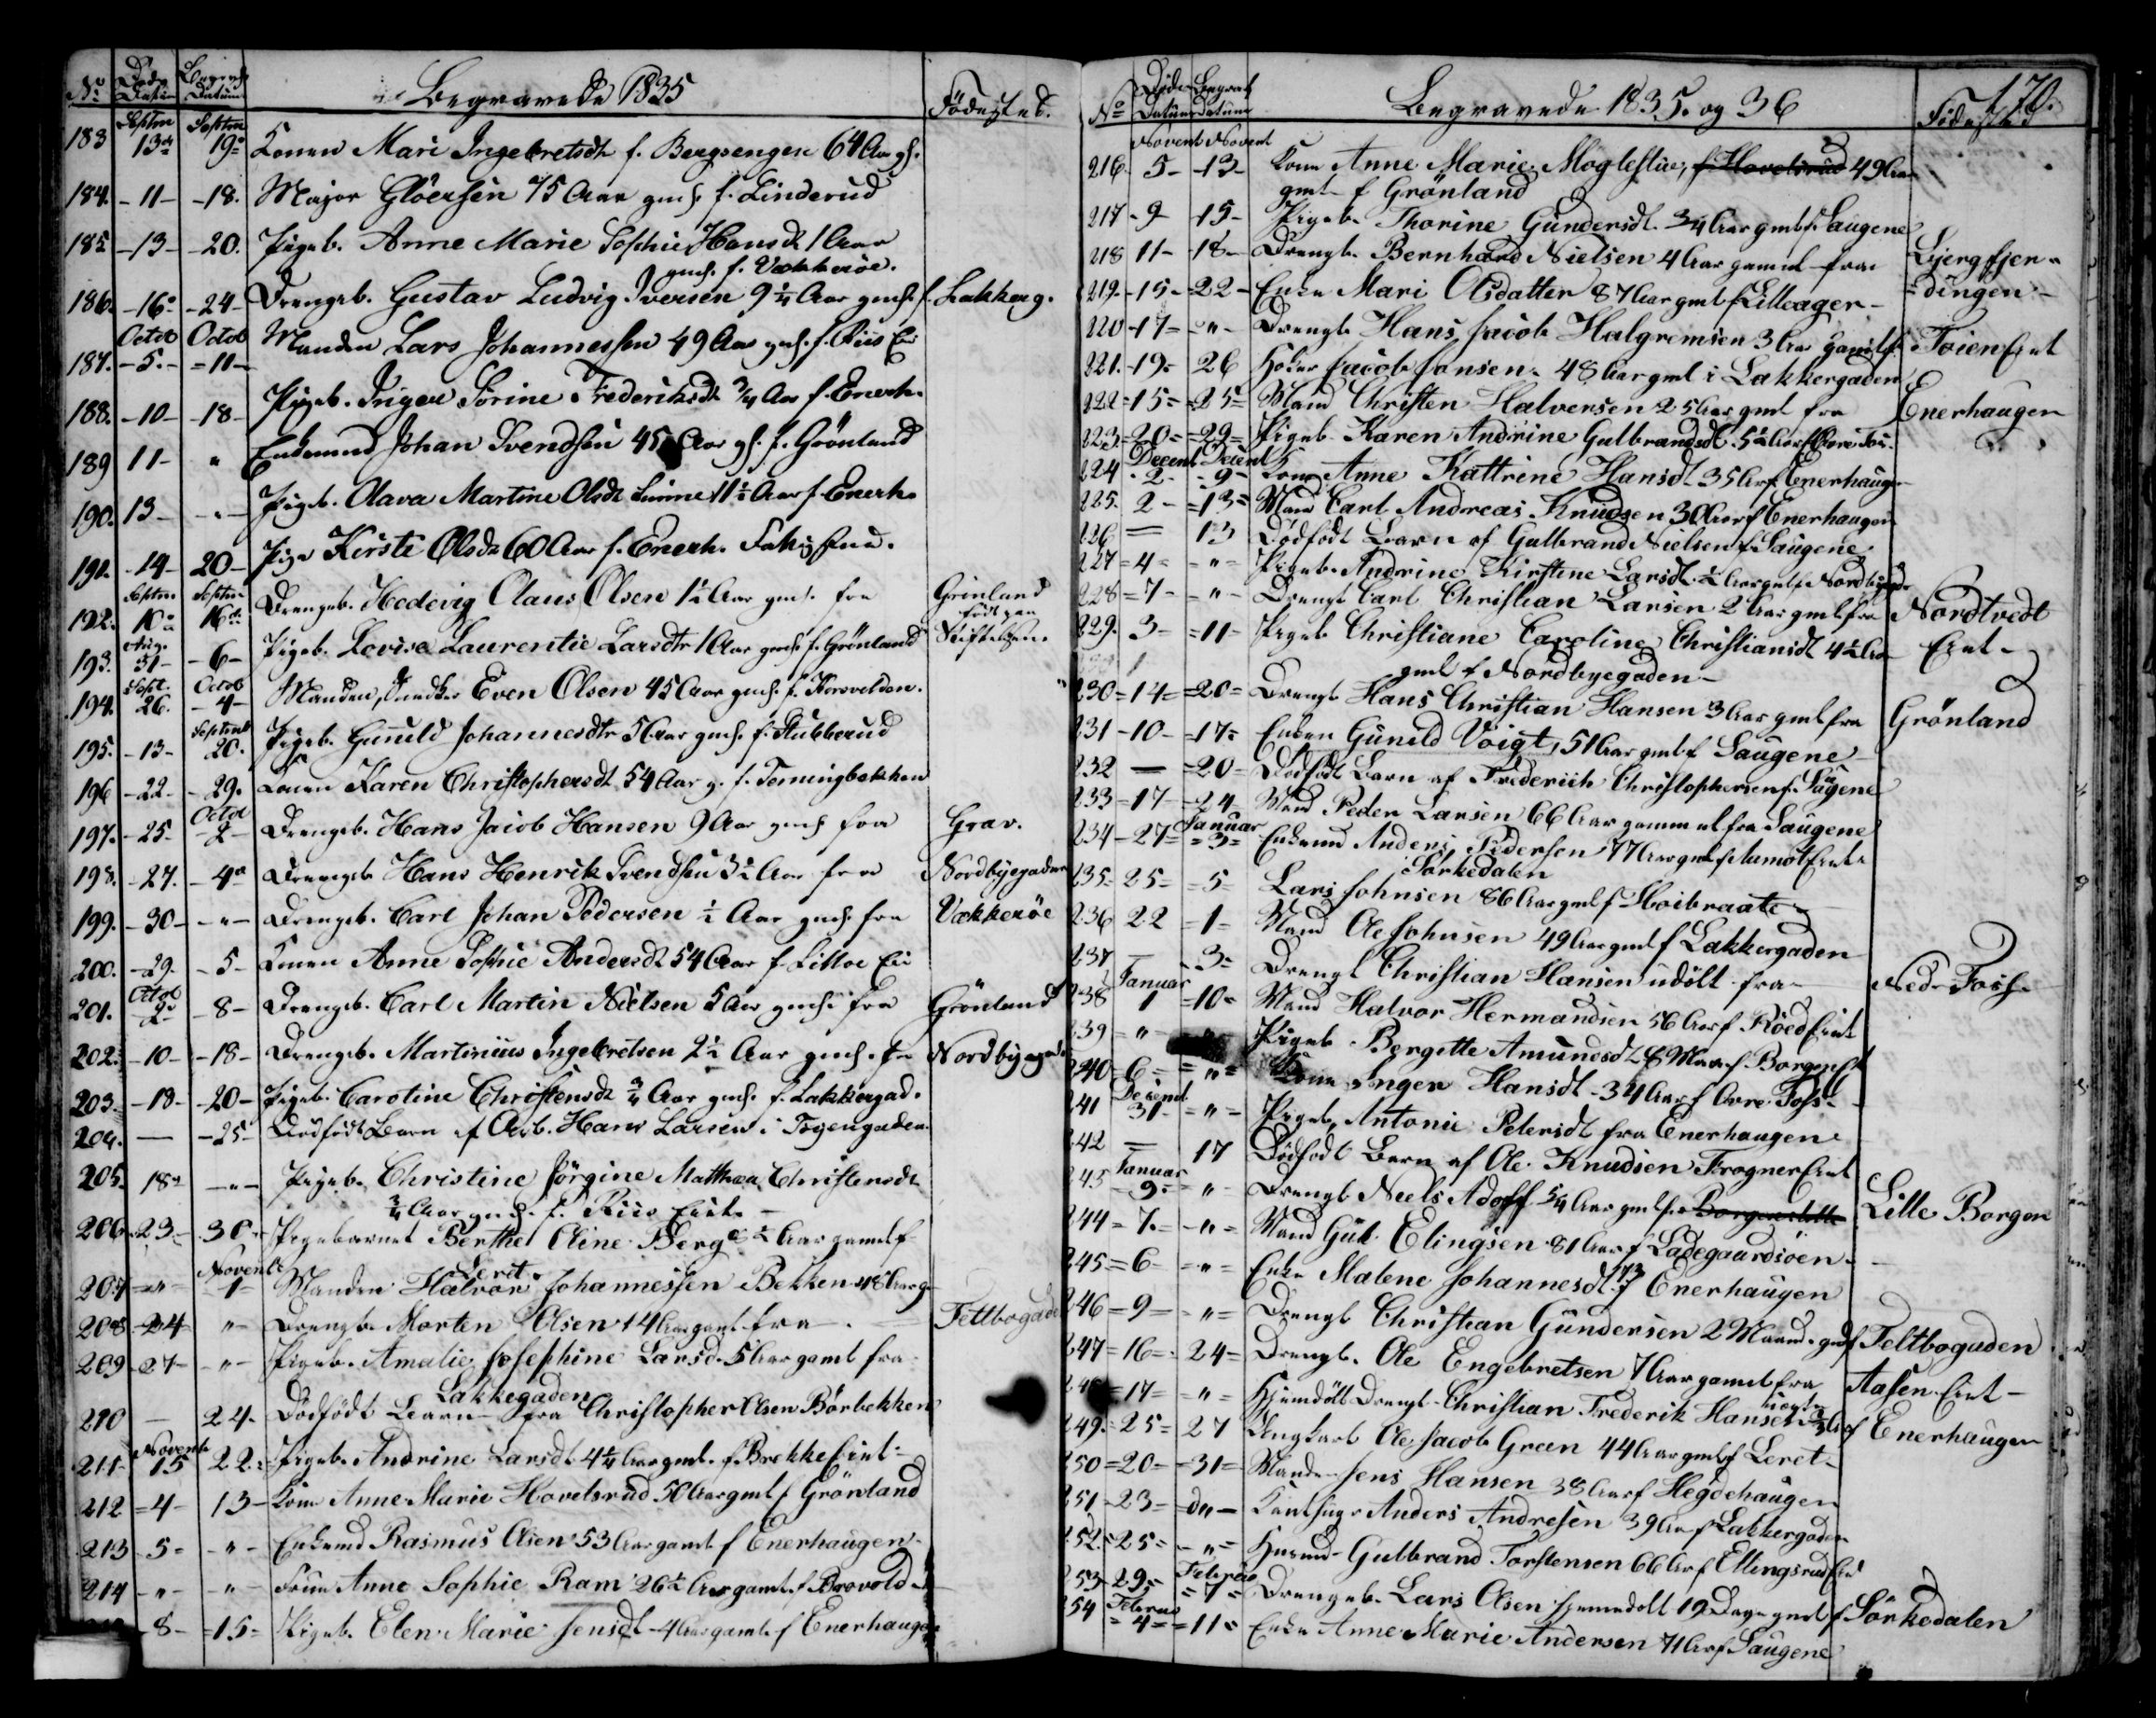 No Døds Datum Begravels Datum Begravede 1835 Födested.
Septbr Septbr
183 13de 19de Konen Mari Ingebretsdt f. Bergsengen 64 Aar gl.
184. - 11 - - 18. Major Glöersen 75 Aar gml. f. Linderud
185 - 13 - - 20. Pigeb. Anne Marie Sophie Hansdt 1 Aar
gml. f. Vækkeröe.
186. - 16 - - 24 - Drengeb. Gustav Ludvig Iversen 9 1/4 Aar gml. f. Lakkerg.
Octob Octob
187. - 5. - = 11 - Manden Lars Johannessen 49 Aar gml. f. Riis Ei
188. - 10 - - 18 - Pigeb. Inger Sorine Frederiksdt 3/4 Aar f. Enerh.
189 11 - " Enkemand Johan Svendsen 45 Aar gl. f. Grönland
190. 13 - - " - Pigeb. Olava Martine Olsdt 11 1/2 Aar f. Enerh.
191. - 14 - 20 - Pige Kirsti Olsdt 60 Aar f. Enerh.
Septbr. Septbr.
192. 10 16 Drengeb. Hedevig Claus Olsen 1 1/2 Aar gml. fra Grönland
Aug. Stiftelsen.
193. 31 - - 6 - Pigeb. Lovise Laurentie Larsdtr 1 Aar gml. f. Grönland
Sept. Octob
194. 26. - 4 - Manden, Even Olsen 45 Aar gml. f. Korsvolden.
Septemb
195. - 13 - 20. Pigeb. Gunild Johannesdtr 5 Aar gml. f. Stubberud
196 - 22. - 29. Konen Karen Christophersdt 54 Aar g. f. Terningbekken
Octob
197. - 25. - 2 - Drengeb. Hans Jacob Hansen 9 Aar gml fra Grav.
198. - 27. - 4 Drengeb. Hans Henrik Svendsen 3 1/2 Aar fra Nordbyegaden
199. - 30 - - " - Drengeb. Carl Johan Pedersen 1/2 Aar gml. fra Vækkeröe
200. - 29. - 5 - Konen Anne Sophie Andersdt 54 Aar f. Lilloe Ei
Octob
201. 2 - 8 - Drengeb. Carl Martin Nielsen 5 Aar gml. fra Grönland
202. - 10 - - 18 - Drengeb. Martinius Ingebretsen 2 1/2 Aar gml. fra Nordbyegad.
203. - 18 - - 20 - Pigeb. Caroline Christensdt 3/4 Aar gml. f. Lakkergad.
204. — - 25 - Dødfødt Barn af Arb. Hans Larsen i Töyengaden
205. 18 - " - Pigeb. Christine Jörgine Mathea Christensdt
3/4 Aar gml. f. Riis Eiet. -
206 - 23. - 30 - Pigebarnet Berthe Oline Berg 1/2 Aar gamel f
Novemb Leret.
207 - " - - 1 - Manden Halvor Johannessen Bekken 48 Aar g
208 - 24 " - Drengb. Morten Olsen 14 Aar gaml. fra Feltbogade
209 - 27 - - " - Pigeb. Amalie Josephine Larsd. 5 Aar gaml fra
Lakkegaden
210 — 24. Dödfödt Barn fra Christopher Olsen Börbekken
Novemb
211 - 15 22. Pigeb. Andrine Larsdt 4 1/4 Aar gml. f. Brekke Eiet -
212 = 4 - 13 - Kone Anne Marie Hovelsrud 50 Aar gml f Grönland
213 - 5 = - " - Enkemd Rasmus Olsen 53 Aar gaml f Enerhaugen
214 - " - - " - Frue Anne Sophie Ram 26 1/2 Aar gaml. f Brovold
- 8 - = 15 = Pigeb. Elen Marie Jensdt - 4 Aar gaml. f Enerhaugen
No Döds Datum Begrav Datum Begravede 1835. og 36 Födested 170.
Novemb Novemb
216. 5 - - 13 - Kone Anne Marie Moglestue, f Hovelsrud 49 Aar
gml f Grönland
217 - 9 - 15 - Pigeb. Thorine Gundersdt. 3/4 Aar gml f. Saugene
218 11 - - 18 - Drengb. Bernhard Nielsen 4 Aar gamel fra Bjergfjer-
219. - 15 - = 22 - Enke Mari Olsdatter 87 Aar gml f Lilleager - = dingen -
220 - 17 - - " - Drengb Hans Jacob Halgremsen 3 Aar gamel f. Töien Eiet
221. - 19. - 26 Jacob Jansen. 48 Aar gml i Lakkergaden
222 = 15 = = 25 = Mand Christen Halvorsen 25 Aar gml fra Enerhaugen
223. = 20 = = 29 = Pigeb Karen Andrine Gulbrandsdt. 5 1/2 Aar f
Decemb Decemb
224 - 2 - - 9 - Kone Anne Kattrine Hansdt 35 Aar f Enerhaugen
225. 2 - = 13 = Mand Carl Andreas Knudsen 30 Aar f Enerhaugen
226 — 13 Dödfödt Barn af Gulbrand Nielsen f. Saugene
227 = 4 = - " - Pigeb. Andrine Kirstine Larsdt. 1/2 Aar gml f. Nordbyegd.
228 = 7 - - " - Drengb Carl Christian Larsen 2 Aar gml fra Nordtvedt
229. 3 - = 11 - Pigeb Christiane Caroline Christiansdt 4 1/2 Aar Eiet -
gml f Nordbyegaden -
230 = 14 = = 20 = Drengb Hans Christian Hansen 3 Aar gml fra Grönland
231 - 10 - = 17 = Enken Gunild Voigt, 51 Aar gml f Saugene
232 — = 20 = Dödfödt Barn af Frederich Christophersen f. Saugene
233 = 17 - - 24 - Mand Peder Larsen 66 Aar gammel fra Saugene
Januar
234 - 27 = = 3 = Enkemd Anders Pedersen 77 Aar gml f Eiet
Sörkedalen
235 - 25 = = 5 = Lars Johnsen 86 Aar gml f Hoibraate
236 22 = 1 = Mand Ole Johnsen 49 Aar gml f Lakkergaden
237 — - 3 = Drengb Christian Hansen udöbt fra Nedr Foss.
Januar
238 1 = 10 = Mand Halvor Hermandsen 56 Aar f Röed Eiet
239 = " Pigeb. Bergitte Amundsdt 8 Maan f Borgen Eiet
240 = 6 = = " = Kone Inger Hansdt - 34 Aar f Övre Foss -
Decemb
241 31 - = " - Pigeb. Antonie Petersdt fra Enerhaugen
242 = 17 Dödfödt Barn af Ole Knudsen Frogner Eiet
Januar
243 9 = " - Drengb Niels Adoff 5/4 Aar gml fra Borgen lille Lille Borgen
244 = 7. = - " - Mand Gul. Elingsen 81 Aar f Ladegaardsöen
245 = 6 = - " = Enke Malene Johannesdt. 73 f Enerhaugen
246 = 9 = - " = Drengb Christian Gundersen 2 Maand. gml f Feltbogaden
247 = 16 = 24 = Drengb. Ole Engebretsen 7 Aar gamel fra Aasen Eiet -
248 = 17 = - " = Hjemdöbt Drengb. Christian Frederik Hansen
249. = 25 = 27 Ungkarl Ole Jacob Green 44 Aar gml f Leret - Enerhaugen
250 = 20 = - 31 = Manden Jens Hansen 38 Aar f Hegdehaugen
251 - 23 = = do - Anders Andresen 39 Aar f Lakkergaden
252. = 25 = - " = Husmd Gulbrand Torstensen 66 Aar f Ellingsrud Eiet
Februar
253 29 = = 7 = Drengeb. Lars Olsen hjemmedöbt 19 Dage gml f Sörkedalen
Februar
254 = 4 = = 11 = Enke Anne Marie Andersen 71 Aar f Saugene